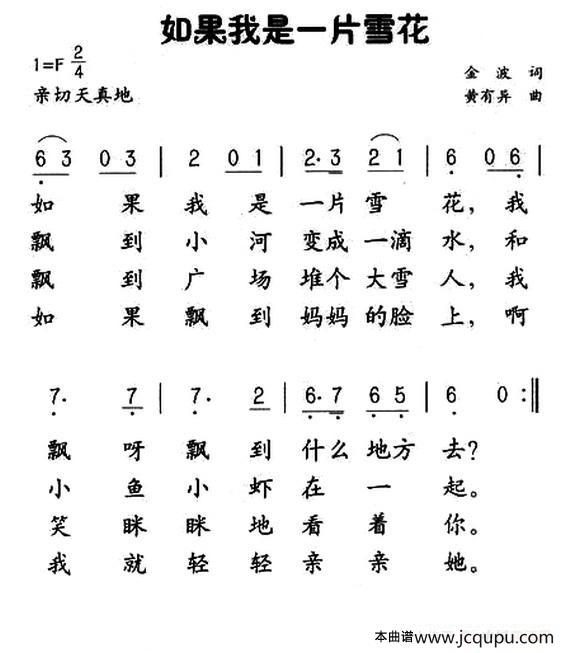 如果我是一片雪花
1=F 2/4
金波 词
亲切天真地
黄有异 曲
6 3 0 3 | 2 0 1 | 2·3 2 1 | 6 0 6 |
如 果 我 是 一片 雪 花，我
飘 到 小 河 变成 一滴 水，和
飘 到 广 场 堆个 大雪 人，我
如 果 飘 到 妈妈 的脸 上，啊
7· 7 | 7· 2 | 6·7 6 5 | 6 0 :‖
飘 呀 飘 到 什么 地方 去？
小 鱼 小 虾 在 一 起。
笑 眯 眯 地 看 着 你。
我 就 轻 轻 亲 亲 她。
本曲谱www.jcqupu.com